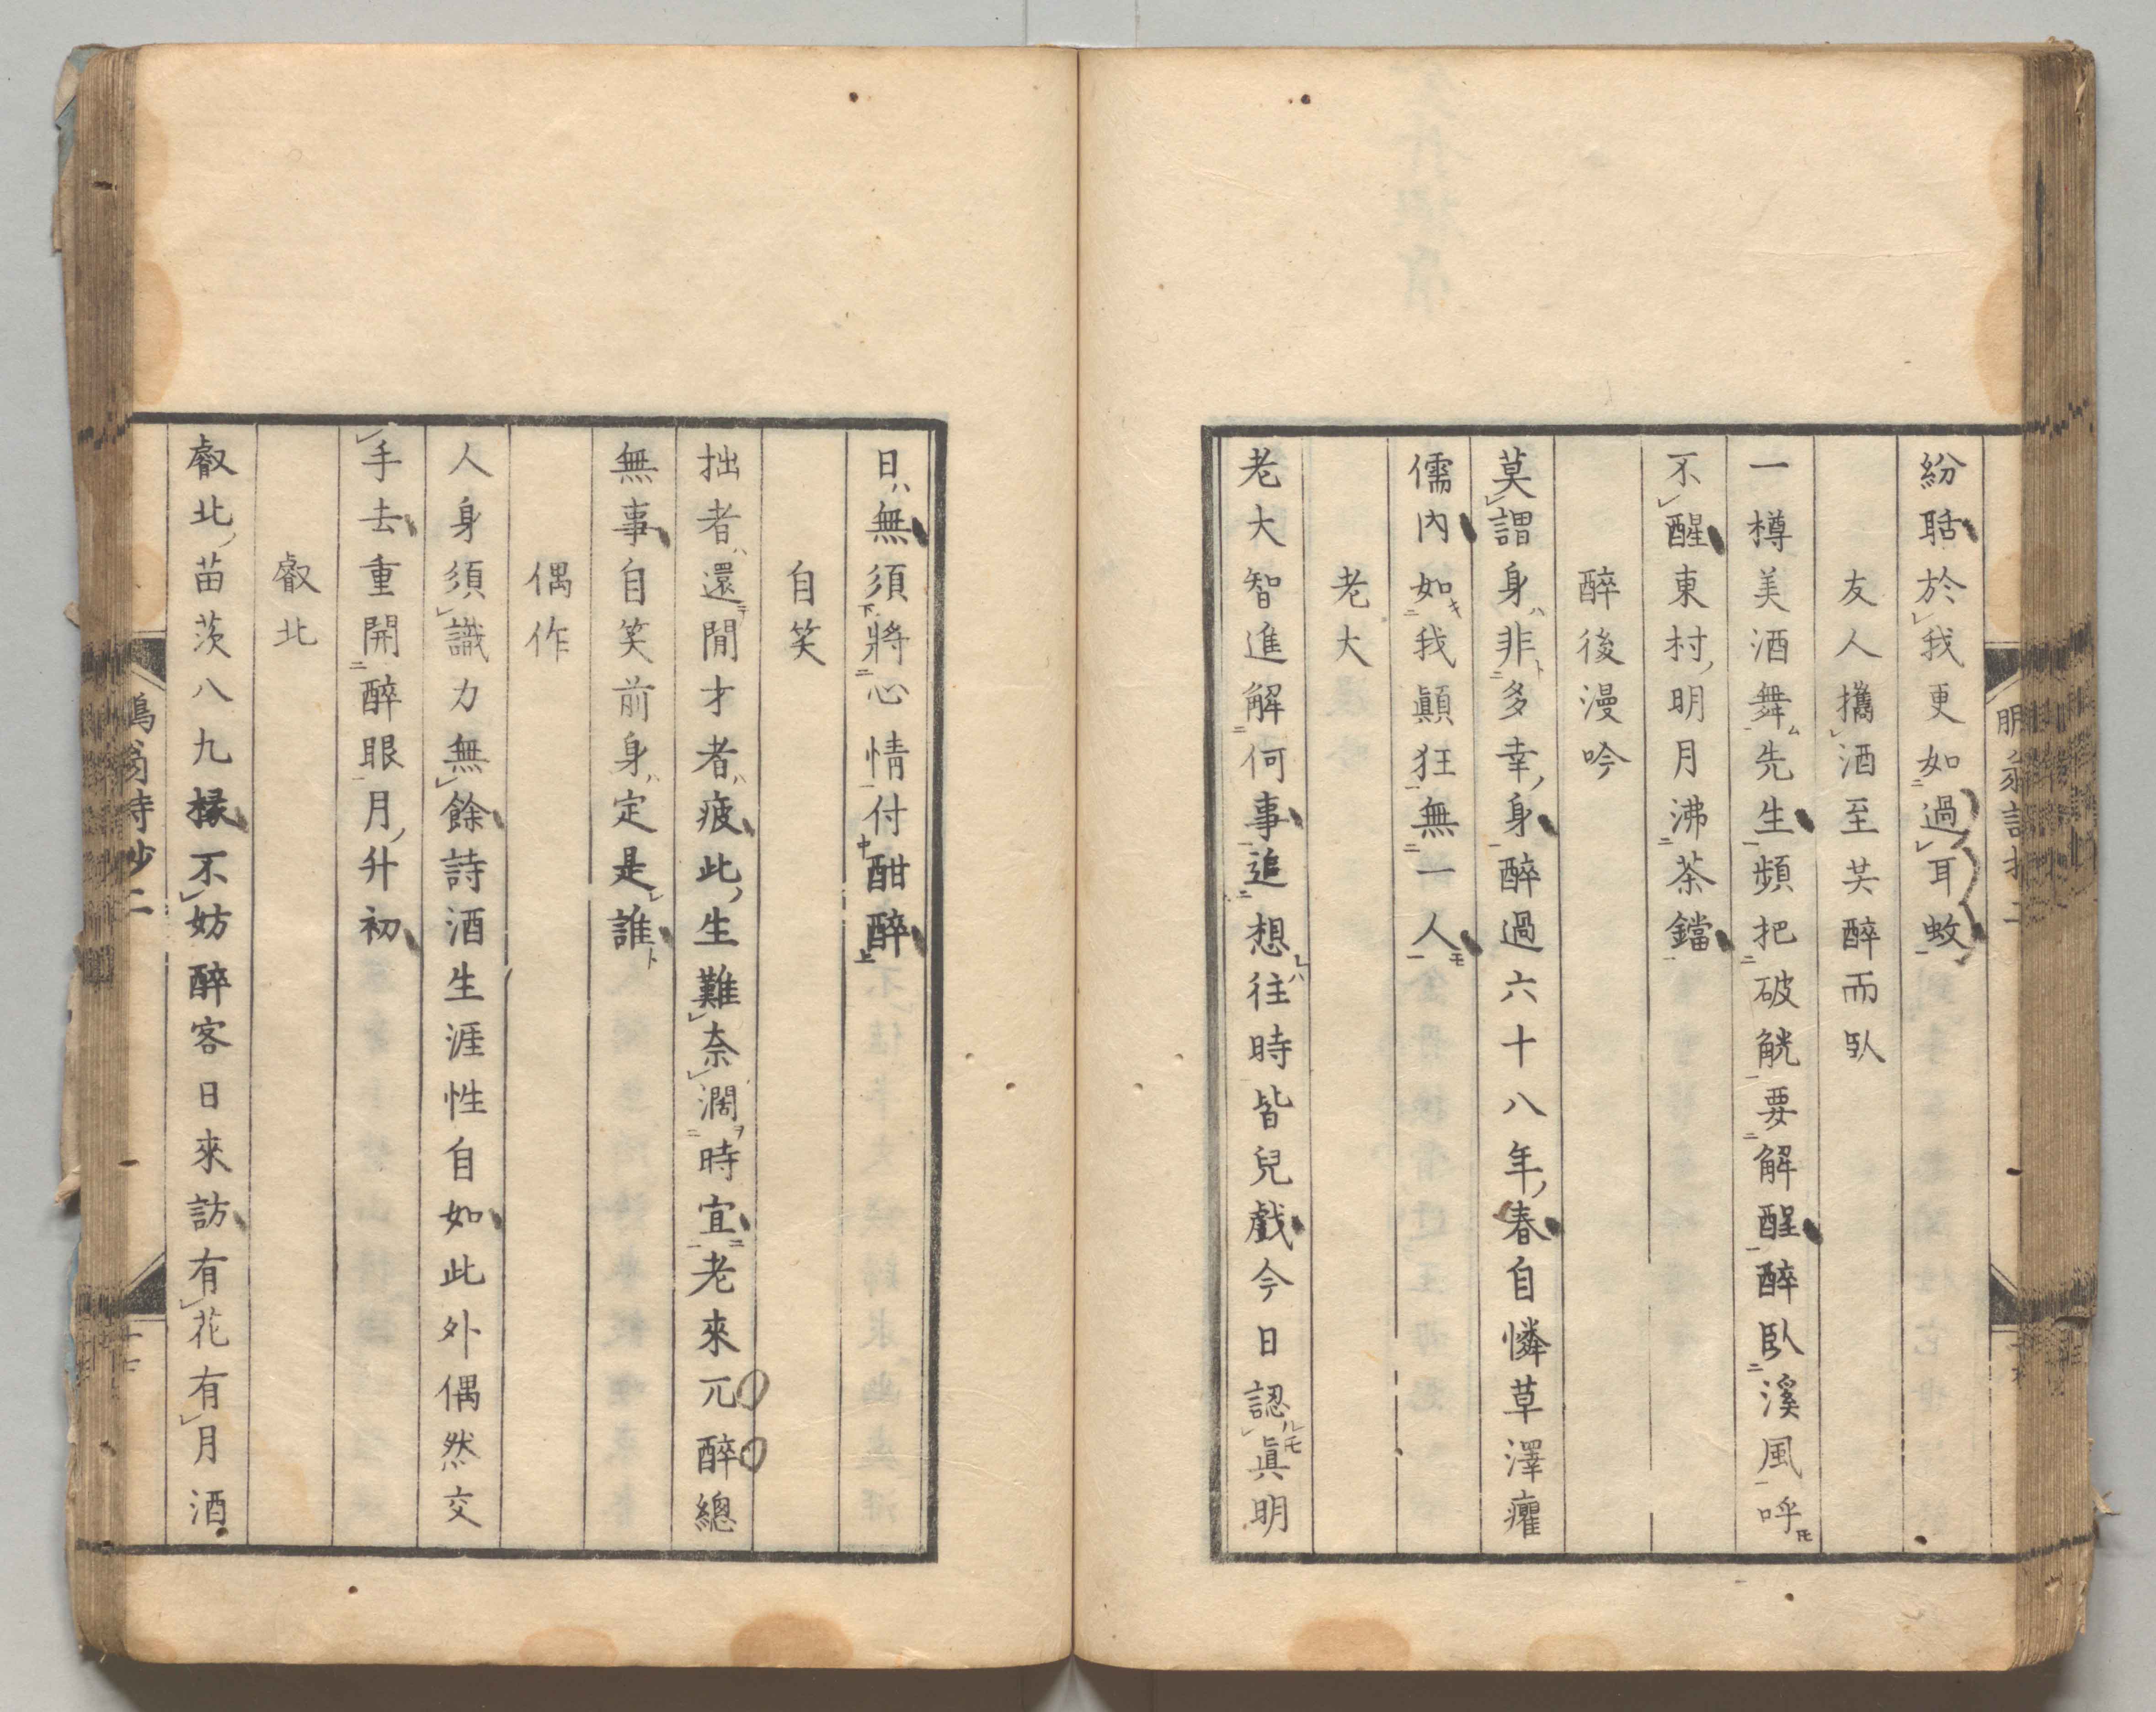 紛聒於我更如過耳蚊
友人攜酒至共醉而臥
一樽美酒舞先生頻把破觥要解酲醉臥溪風呼
不醒東村明月沸茶鐺
醉後漫吟
莫謂身非多幸身醉過六十八年春自憐草澤癯
儒內如我顚狂無一人
老大
老大智進解何事追想往時皆兒戲今日認眞明
日無須將心情付酣醉
自笑
拙者還閒才者疲此生難奈濶時宜老來兀醉總
無事自笑前身定是誰
偶作
人身須識力無餘詩酒生涯性自如此外偶然交
手去重開醉眼月升初
叡北
叡北苗茨八九椽不妨醉客日來訪有花有月酒
翁詩抄二